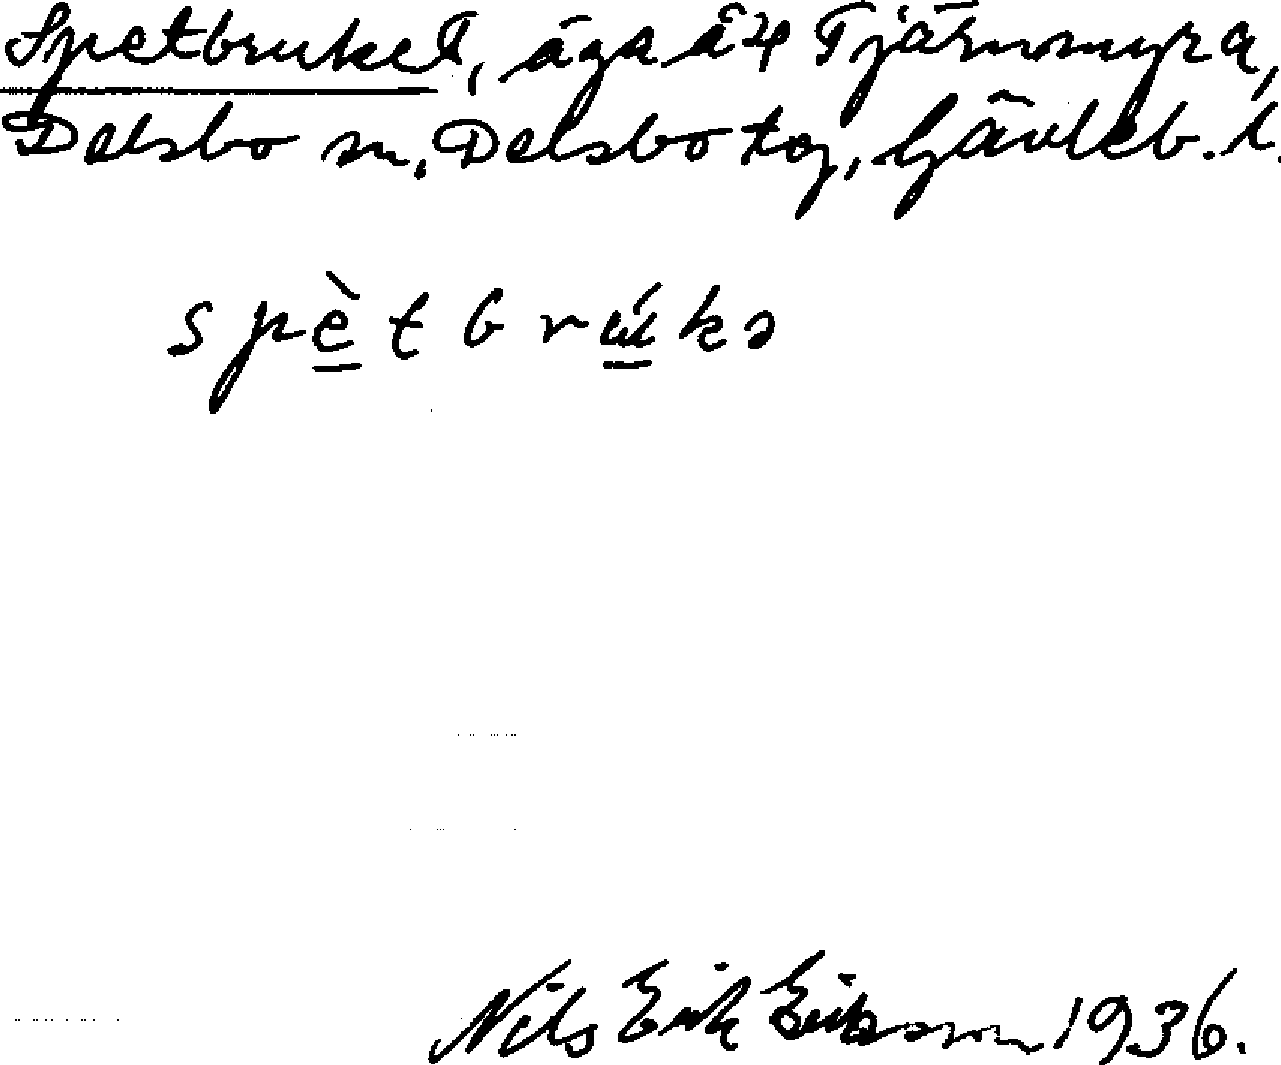 Spetbruket, äga å 4 Tjärnmyra,
Delsbo sn, Delsbo tg, Gävleb. l.
spètbrúkə
Nils Erik Eriksson 1936.